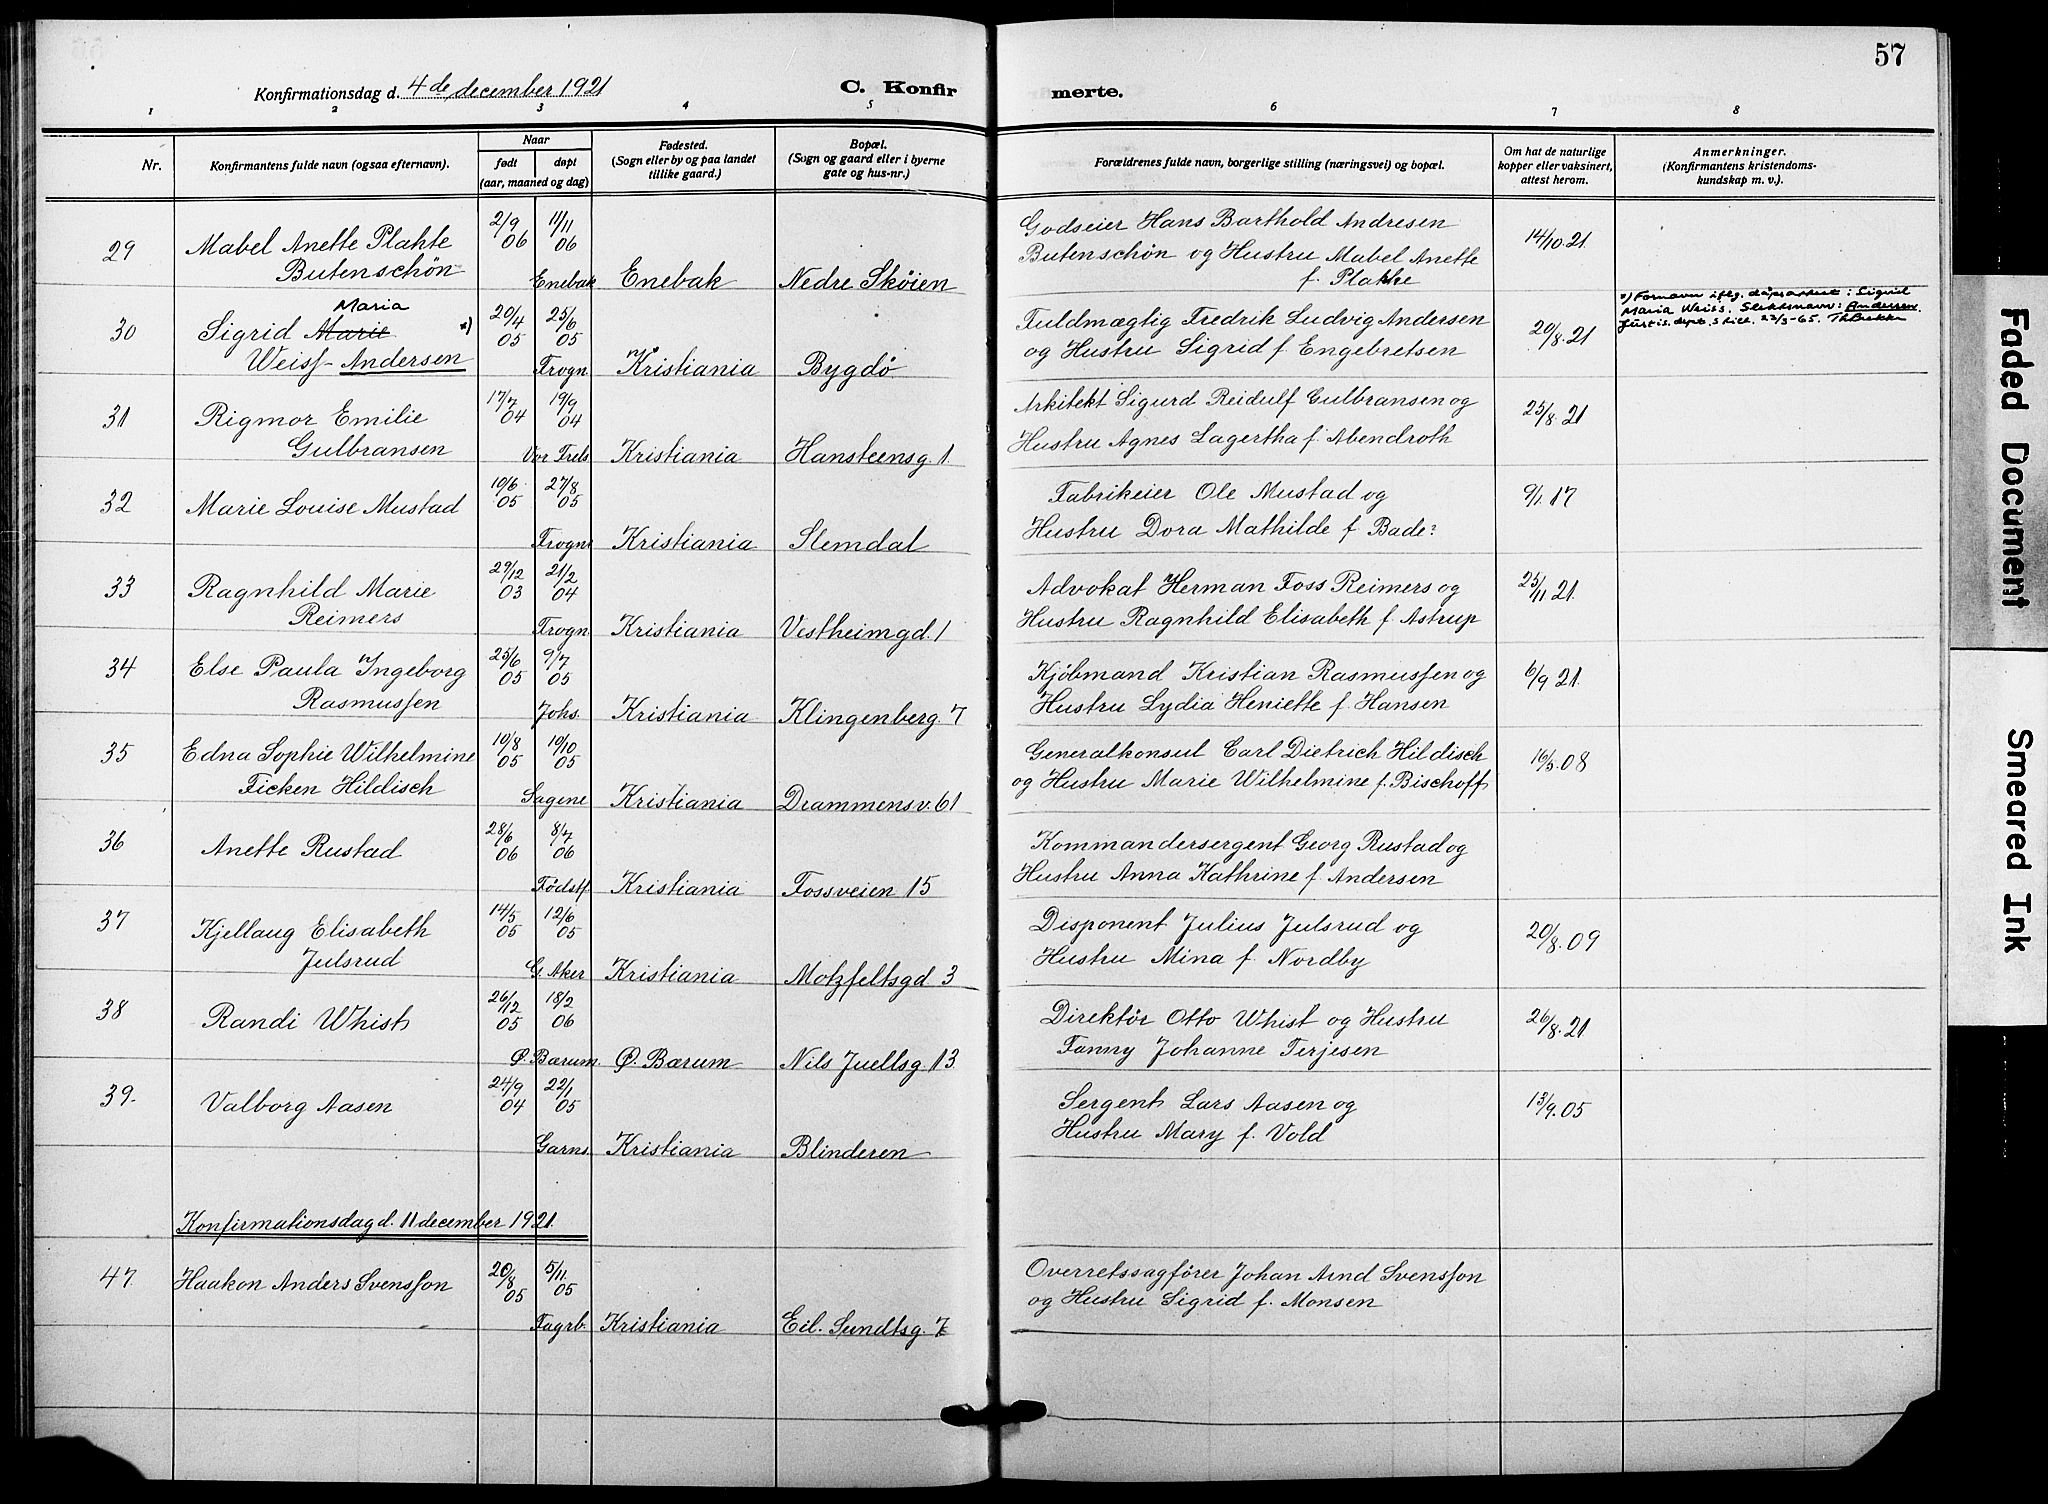 57
Konfirmationsdag d. 4de december 1921
C. Konfirmerte.
1 2 3 4 5 6 7 8
Nr.
Konfirmantens fulde navn (ogsaa efternavn).
Naar
født
døpt
(aar, maaned og dag)
Fødested.
(Sogn eller by og paa landet
tillike gaard.)
Bopæl.
(Sogn og gaard eller i byerne
gate og hus-nr.)
Forældrenes fulde navn, borgerlige stilling (næringsvei) og bopæl.
Om hat de naturlige
kopper eller vaksinert,
attest herom.
Anmerkninger.
(Konfirmantens kristendoms-
kundskap m. v.).
29 Mabel Anette Plahte 2/9 06 11/11 06 Godseier Hans Barthold Andresen 14/10 21
Butenschøn Enebak Enebak Nedre Skøien Butenschøn og Hustru Mabel Anette
f. Plahte
Maria
30 Sigrid Marie *) 20/4 05 25/6 05 Fuldmægtig Fredrik Ludvig Andersen 20/8. 21
Weiss-Andersen Frogn. Kristiania Bygdø og Hustru Sigrid f. Engebretsen
*) Fornavn iflg. dåpsattest: Sigrid
Maria Weiss. Slektsnavn: Andersen.
Justis. dept. skill. 22/3-65. ThBrekke
31 Rigmor Emilie 17/7 04 19/9 04 Arkitekt Sigurd Reidulf Gulbransen og 25/8. 21
Gulbransen Vor Frels Kristiania Hansteensg. 1 Hustru Agnes Lagertha f. Abendroth
32 Marie Louise Mustad 10/6 05 27/8 05 Fabrikeier Ole Mustad og 9/1. 17
Frogn. Kristiania Slemdal Hustru Dora Mathilde f. Bade?
33 Ragnhild Marie 29/12 03 21/2 04 Advokat Herman Foss Reimers og 25/11 21
Reimers Frogn. Kristiania Vestheimgd. 1 Hustru Ragnhild Elisabeth f. Astrup
34 Else Paula Ingeborg 25/6 05 9/7 05 Kjøbmand Kristian Rasmussen og 6/9 21
Rasmussen Johs. Kristiania Klingenberg. 7 Hustru Lydia Heniette f. Hansen
35 Edna Sophie Wilhelmine 10/8 05 10/10 05 Generalkonsul Carl Dietrich Hildisch 16/5. 08
Ficken Hildisch Sagene Kristiania Drammensv. 61 og Hustru Marie Wilhelmine f. Bischoff
36 Anette Rustad 28/6 06 8/7 06 Kommandersergent Georg Rustad og
Fødstf. Kristiania Fossveien 15 Hustru Anna Kathrine f. Andersen
37 Kjellaug Elisabeth 14/5 05 12/6 05 Disponent Julius Julsrud og 20/8. 09
Julsrud G. Aker Kristiania Motzfeltsgd 3 Hustru Mina f. Nordby
38 Randi Whist 26/12 05 18/2 06 Direktør Otto Whist og Hustru 26/8. 21
Ø. Bærum. Ø. Bærum Nils Juellsg. 13 Fanny Johanne Terjesen
39. Valborg Aasen 24/9 04 22/1 05 Sergent Lars Aasen og 13/9. 05
Garns. Kristiania Blinderen Hustru Mary f. Vold
Konfirmationsdag d. 11 december 1921.
47 Haakon Anders Svensson 20/8 05 5/11. 05 Overretssagfører Johan Arnd Svensson
Fagrb. Kristiania Eil. Sundtsg. 7 og Hustru Sigrid f. Monsen
Faded Document
Smeared Ink